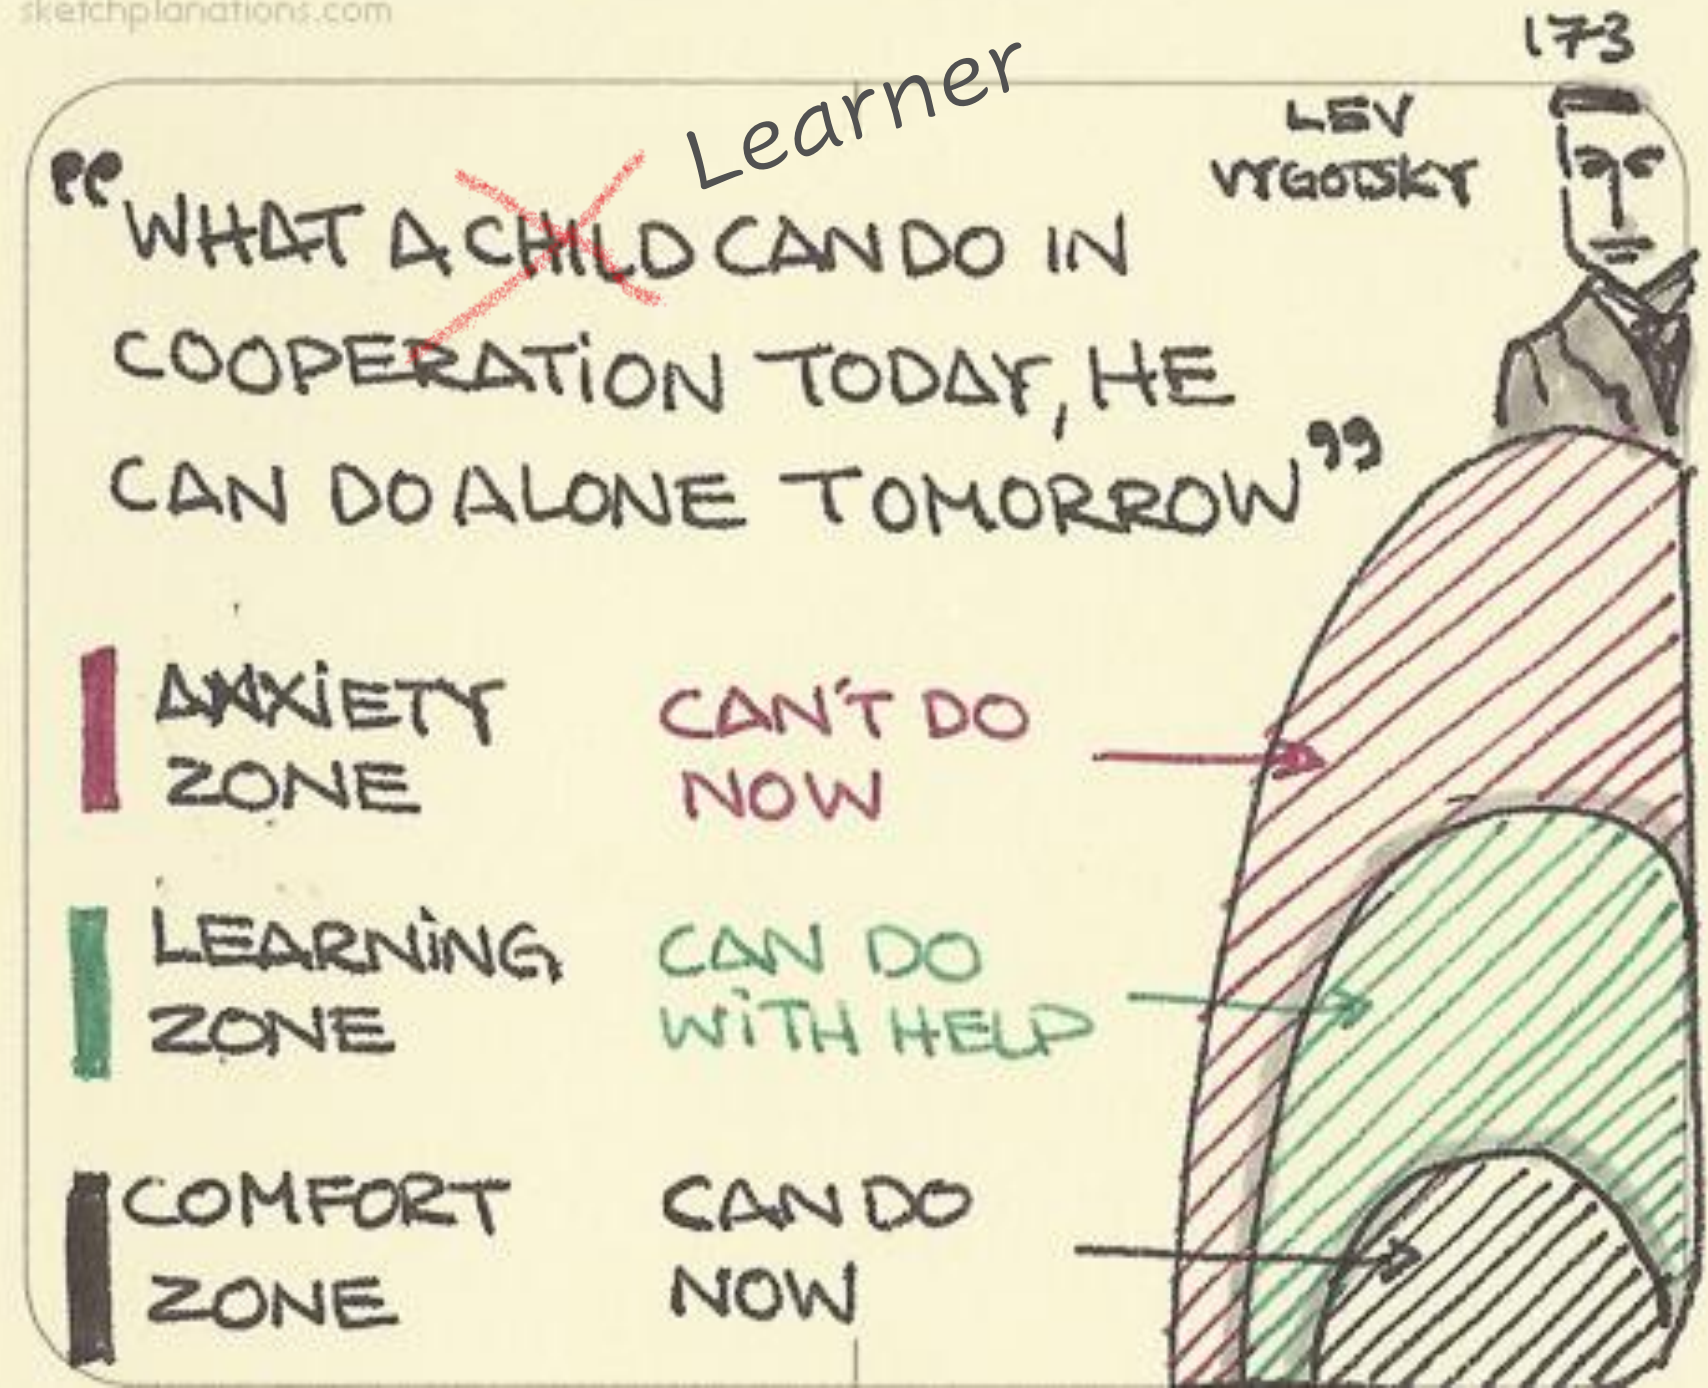 sketchplanations.com
173
LEV
VYGOTSKY
Learner
“WHAT A CHILD CAN DO IN
COOPERATION TODAY, HE
CAN DO ALONE TOMORROW”
ANXIETY
ZONE
CAN'T DO
NOW
LEARNING
ZONE
CAN DO
WITH HELP
COMFORT
ZONE
CAN DO
NOW